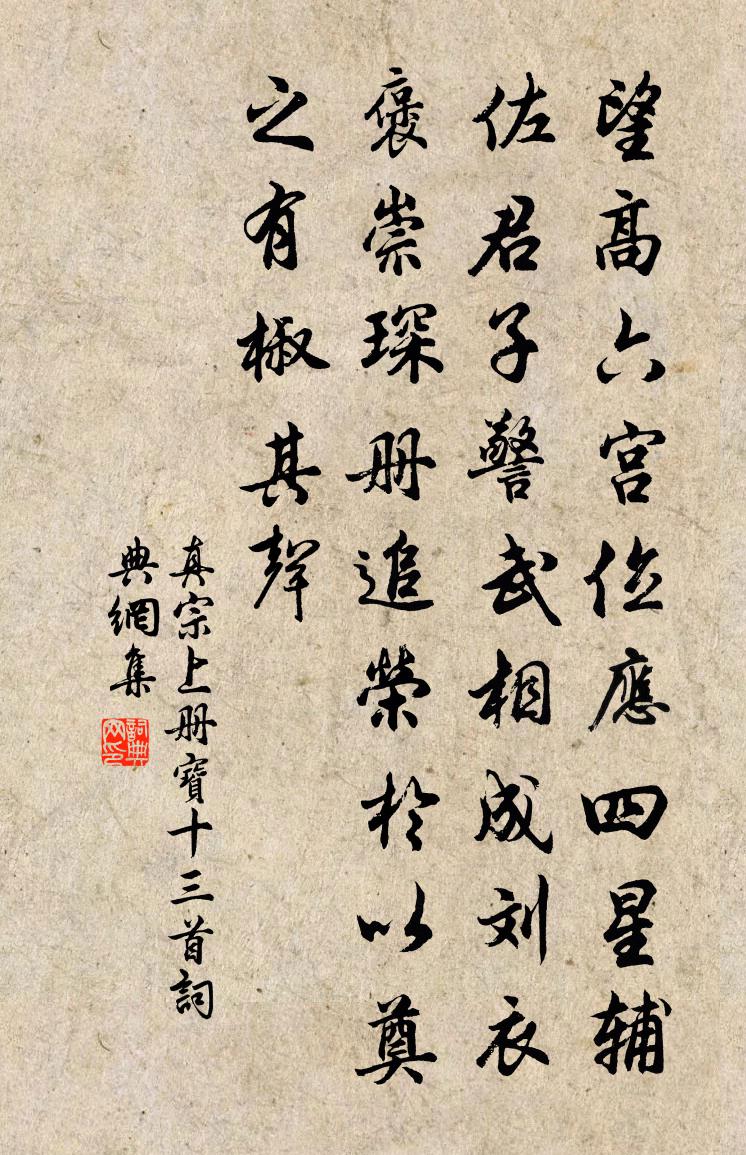 望高六宫位應四星輔
佐君子警武相成刘衣
褒崇琛册追榮於以奠
之有椒其聲
真宗上册寶十三首詞
典網集
詞典
网印